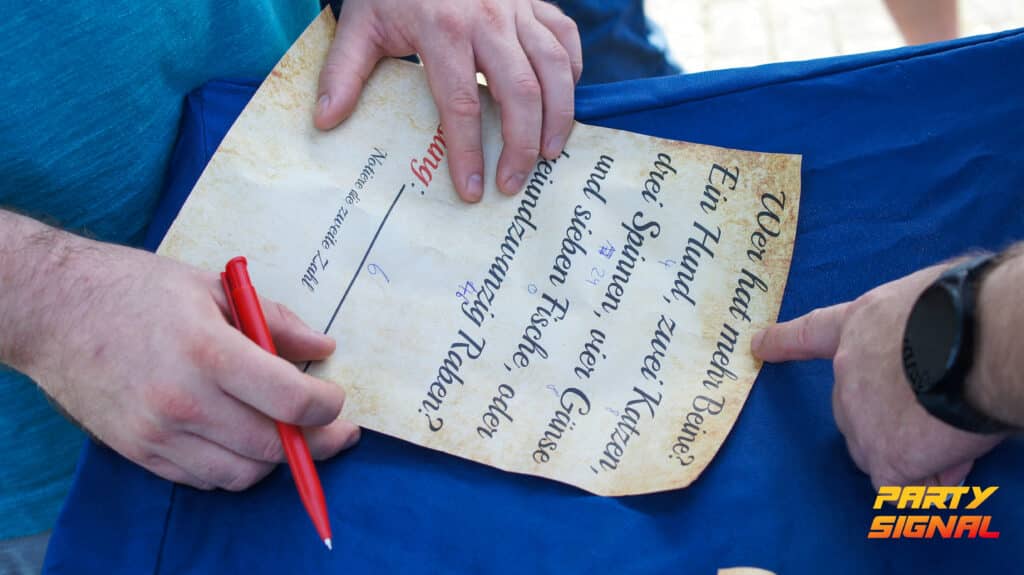 Wer hat mehr Beine?
Ein Hund, zwei Katzen,
4
drei Spinnen, vier Gänse
24 8
und sieben Fische, oder
0
dreiundzwanzig Raben?
46
6
Notiere die zweite Zahl
PARTY
SIGNAL